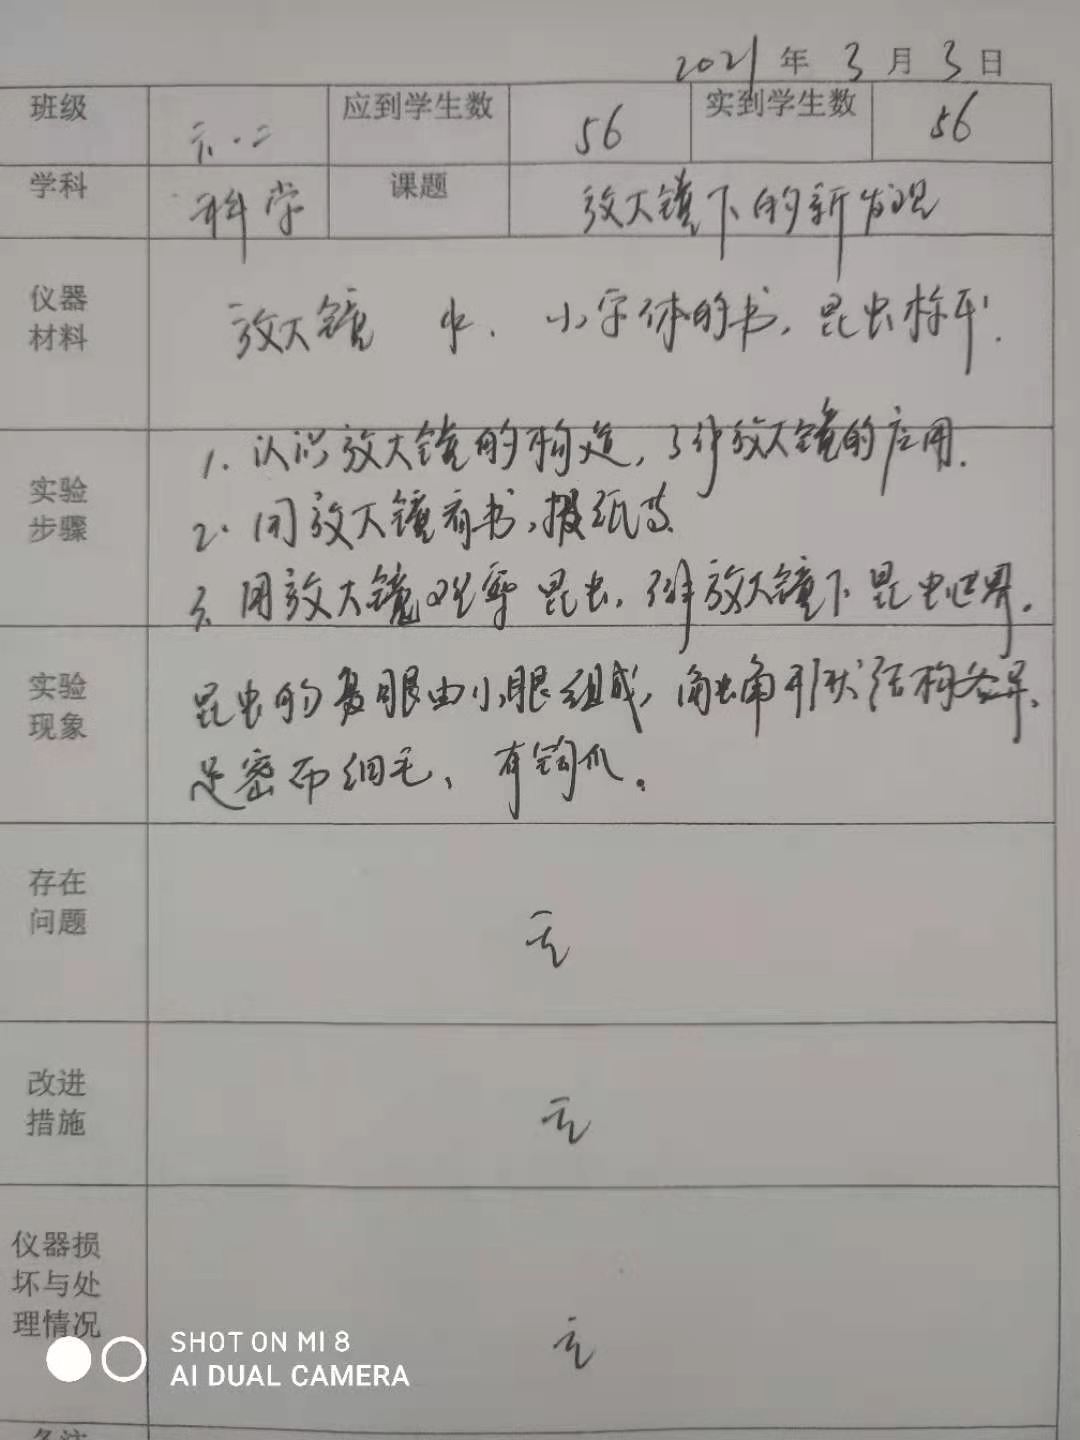 2021年3月3日
班级 六.二 应到学生数 56 实到学生数 56
学科 科学 课题 放大镜下的新发现
仪器
材料
放大镜 水、小字体的书,昆虫标本.
实验
步骤
1. 认识放大镜的构造,了解放大镜的应用.
2. 用放大镜看书,报纸等
3. 用放大镜观察昆虫,了解放大镜下昆虫世界.
实验
现象
昆虫的复眼由小眼组成,触角形状结构各异、
足密布细毛、有钩爪。
存在
问题
无
改进
措施
无
仪器损
坏与处
理情况
无
SHOT ON MI 8
AI DUAL CAMERA
备注